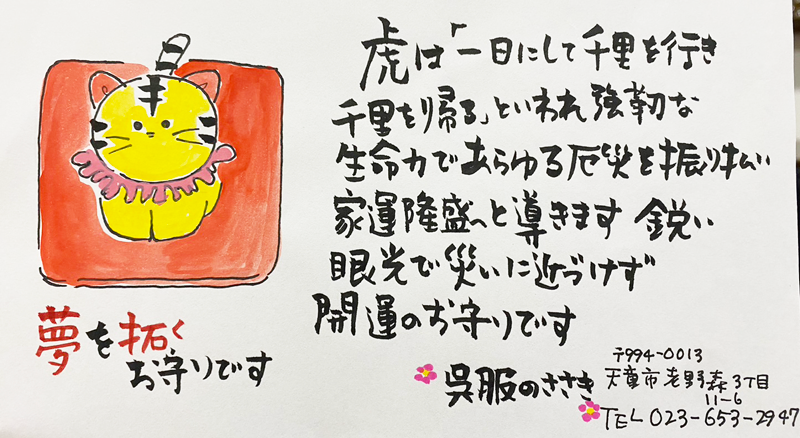 虎は「一日にして千里を行き
千里を帰る」といわれ強靭な
生命力であらゆる厄災を振り払い
家運隆盛へと導きます 鋭い
眼光で災いに近づけず
開運のお守りです
夢を拓く
お守りです
呉服のささき
〒994-0013
天童市老野森3丁目
11-6
TEL 023-653-2947